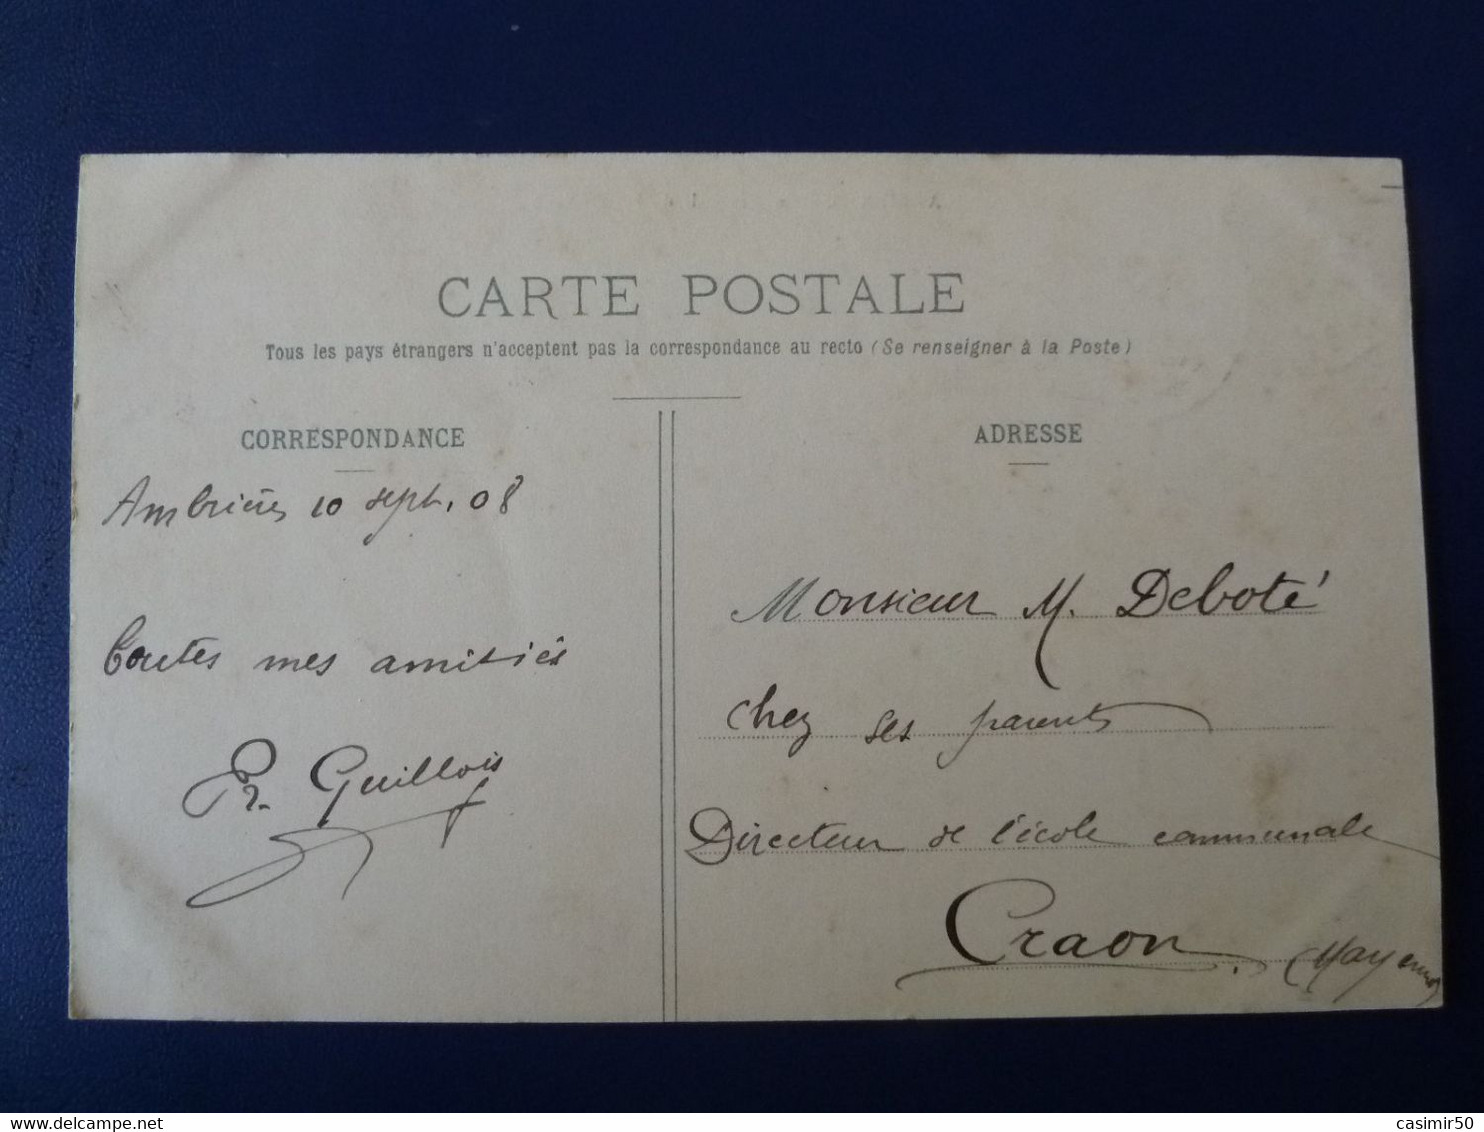 CARTE POSTALE
Tous les pays étrangers n'acceptent pas la correspondance au recto (Se renseigner à la Poste)
CORRESPONDANCE
Ambrières 10 sept. 08
Toutes mes amitiés
Guillois
ADRESSE
Monsieur M. Deboté
chez ses parents
Directeur de l'école communale
Craon. (Mayenne)
casimir50